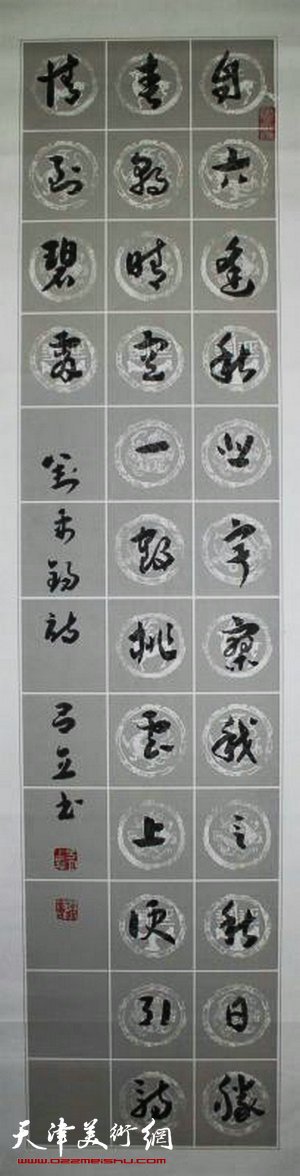 自古逢秋悲寂寥我言秋日勝
春朝晴空一鶴排雲上便引詩
情到碧霄
劉禹錫詩
立书
天津美術網
www.022meishu.com